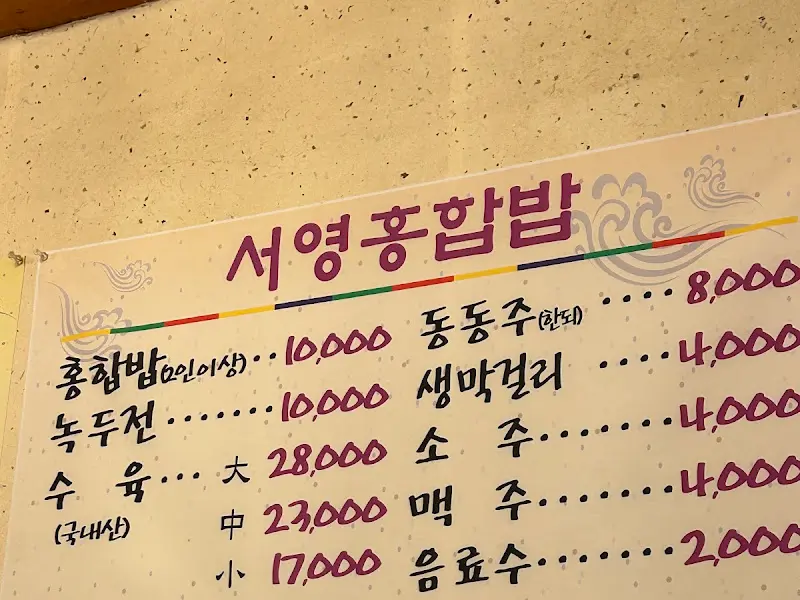 서영홍합밥
홍합밥(2인이상)··10,000
녹두전·······10,000
수 육··· 大 28,000
(국내산) 中 23,000
小 17,000
동동주(한되) ····8,000
생막걸리 ····4,000
소 주·······4,000
맥 주·······4,000
음료수·······2,000